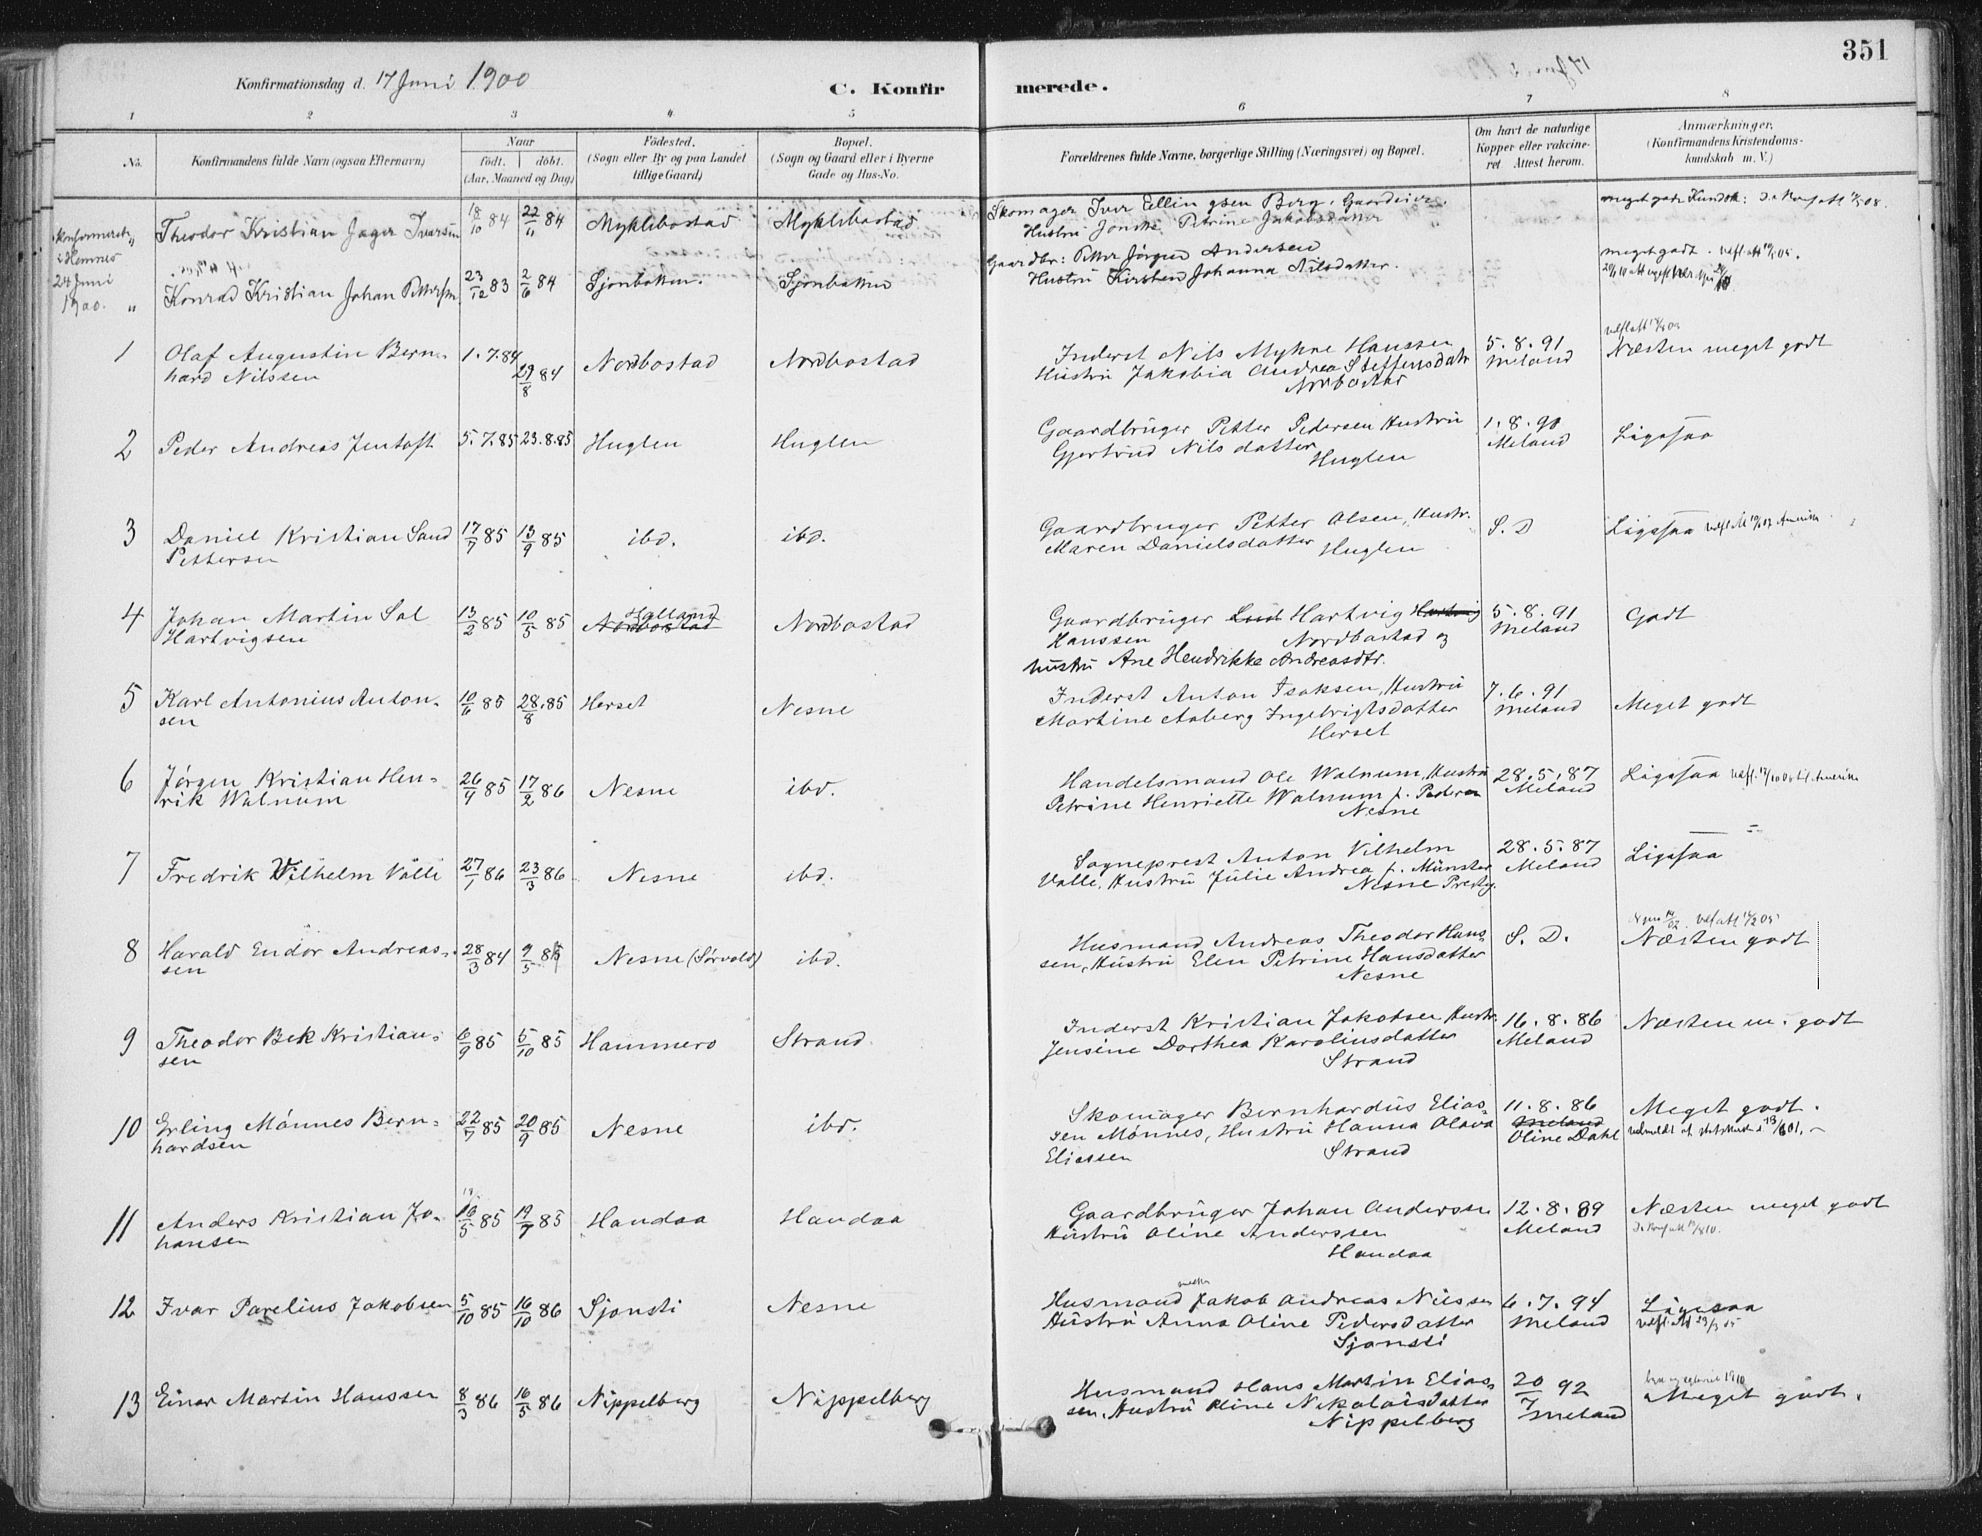 351
Konfirmationsdag d. 17 Juni 1900
C. Konfirmerede.
1 2 3 4 5 6 7 8
No. Konfirmandens fulde Navn (ogsaa Efternavn)
Naar
födt. döbt.
(Aar, Maaned og Dag)
Födested.
(Sogn eller By og paa Landet
tillige Gaard)
Bopæl.
(Sogn og Gaard eller i Byerne
Gade og Hus-No.
Forældrenes fulde Navne, borgerlige Stilling (Næringsvei) og Bopæl.
Om havt de naturlige
Kopper eller vakcine-
ret Attest herom.
Anmærkninger,
(Konfirmandens Kristendoms-
kundskab m. V.)
Konfirmeret
i Hemnes
24 Juni
1900.
" Theodor Kristian Jager Ivarsen 18/10 84 22/11 84 Myklebostad Myklebostad
Skomager Iver Ellingsen Berg, Gaardeier.
Hustru Jonske Petrine Jakobsdatter
" Konrad Kristian Johan Pettersen 23/12 83 2/6 84 Sjonbotten. Sjonbotten
Gaardbr: Petter Jørgen Andersen
Hustru Kirsten Johanna Nilsdatter.
meget godt.
1 Olaf Augustin Bern-
hard Nilssen
1.7.84 29/8 84 Nordbostad Nordbostad
Inderst Nils Myhre Hanssen
Hustru Jakobia Andrea Steffensdatr
Nordbostad
5.8.91
Meland
Næsten meget godt
2 Peder Andreas Jentoft 5.7.85 23.8.85 Huglen Huglen
Gaardbruger Petter Pedersen Hustru
Gjertrud Nilsdatter
Huglen
1.8.90
Meland
Ligesaa
3 Daniel Kristian Sand
Pettersen
17/7 85 13/9 85 ibd. ibd.
Gaardbruger Petter Olsen, Hustr.
Maren Danielsdatter
Huglen
S. D
Ligesaa
4 Johan Martin Sol
Hartvigsen
13/2 85 10/5 85 Nordbostad Holland Nordbostad
Gaardbruger Hartvig Hartvig
Hanssen Nordbostad og
hustru Ane Hendrikke Andreasdtr.
5.8.91
Meland
Godt
5 Karl Antonius Anton-
sen
10/6 85 28/8 85 Herset Nesne
Inderst Anton Isaksen, Hustru
Martine Aaberg Ingebrigtsdatter
Herset
7.6.91
Meland
Meget godt
6 Jørgen Kristian Hen-
rik Walnum
26/4 85 17/2 86 Nesne ibd.
Handelsmand Ole Walnum, Hustru
Petrine Henriette Walnum f. Pedersen
Nesne
28.5.87
Meland
Ligesaa
7 Fredrik Vilhelm Valle 27/1 86 23/3 86 Nesne ibd.
Sogneprest Anton Vilhelm
Valle, Hustru Julie Andrea f. Münster
Nesne Prestg.
28.5.87
Meland
Ligesaa
8 Harald Endor Andreas-
sen
28/3 84 9/5 85 Nesne (Sørvold) ibd.
Husmand Andreas Theodor Hans-
sen, Hustru Elen Petrine Hansdatter
Nesne
S. D.
Næsten godt
9 Theodor Bek Kristian-
sen
6/9 85 5/10 85 Hammero Strand
Inderst Kristian Jakobsen Hustr.
Jensine Dorthea Karolinsdatter
Strand
16.8.86
Meland
Næsten m. godt
10 Erling Mónnes Bern-
hardsen
22/7 85 20/9 85 Nesne ibd.
Skomager Bernhardus Elias-
sen Mónnes, Hustru Hanna Olava
Eliassen Strand
11.8.86
Meland
Oline Dahl
Meget godt.
11 Anders Kristian Jo-
hansen
16/5 85 19/7 85 Handaa Handaa
Gaardbruger Johan Anderssen
Hustru Oline Anderssen
Handaa
12.8.89
Meland
Næsten meget godt
12 Ivar Parelius Jakobsen 5/10 85 16/10 86 Sjonsti Nesne
Husmand Jakob Andreas Nilssen
Hustru Anna Oline Pedersdatter
Sjonsti
6.7.94
Meland
Ligesaa
13 Einar Martin Hanssen 8/3 86 16/5 86 Nippelberg Nippelberg
Husmand Hans Martin Elias-
sen, Hustru Oline Nikolaisdatter
Nippelberg
20/7 92
Meland
Meget godt.